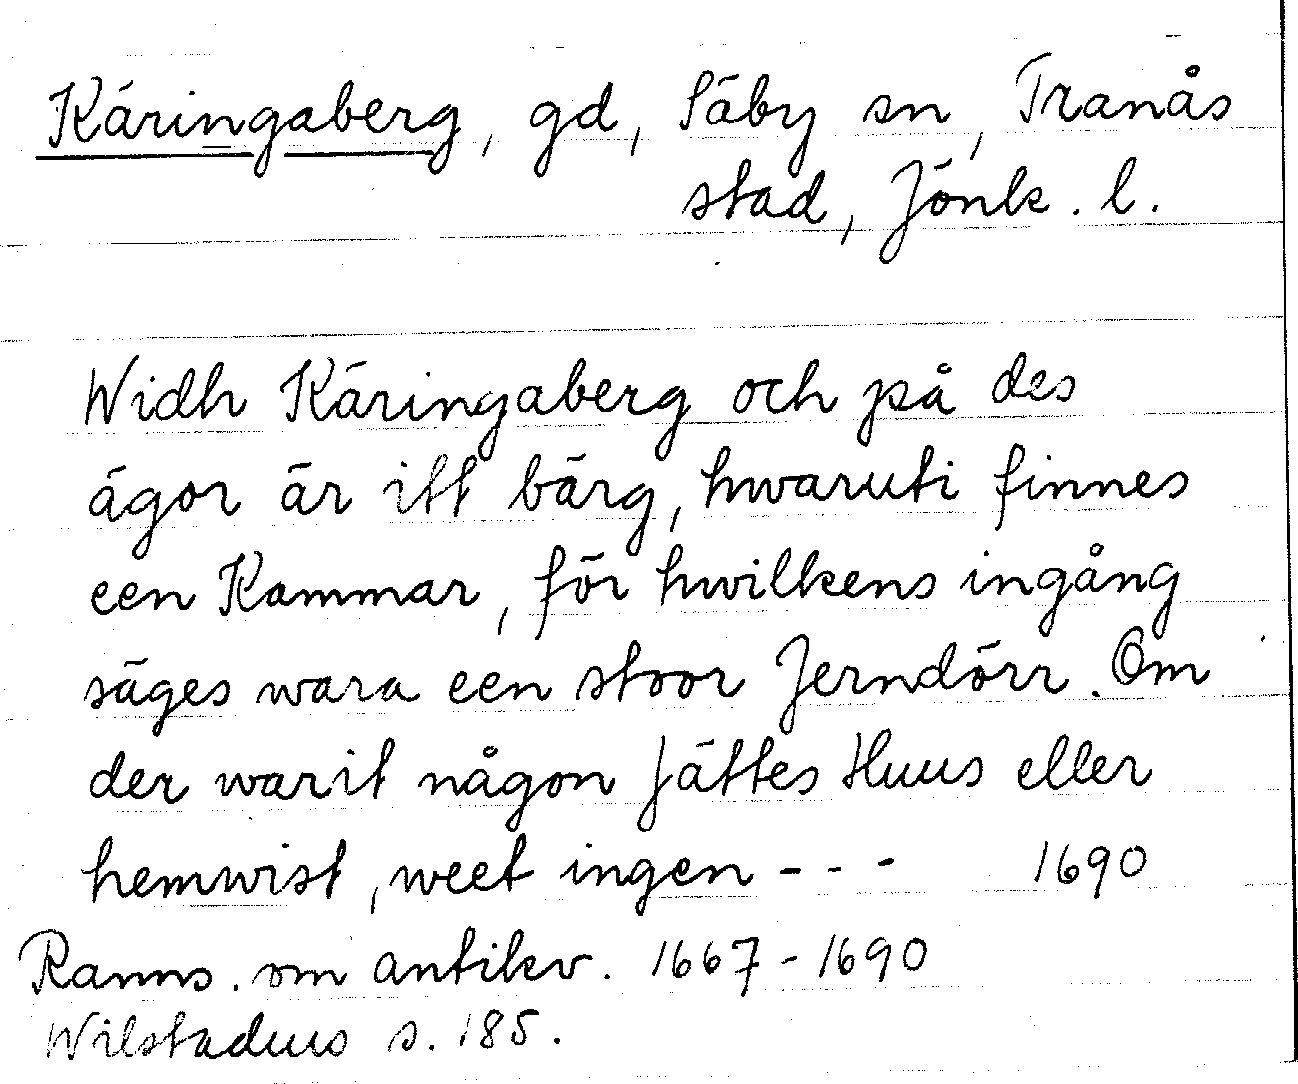 Käringaberg, gd, Säby sn, Tranås
stad, Jönk. l.
Widh Käringaberg och på des
ägor är itt bärg, hwaruti finnes
een Kammar, för hwilkens ingång
säges wara een stoor Jerndörr. Om
der warit någon Jättes Huus eller
hemwist, weet ingen - - - 1690
Ranns. om antikv. 1667-1690
Wilstadius s. 185.